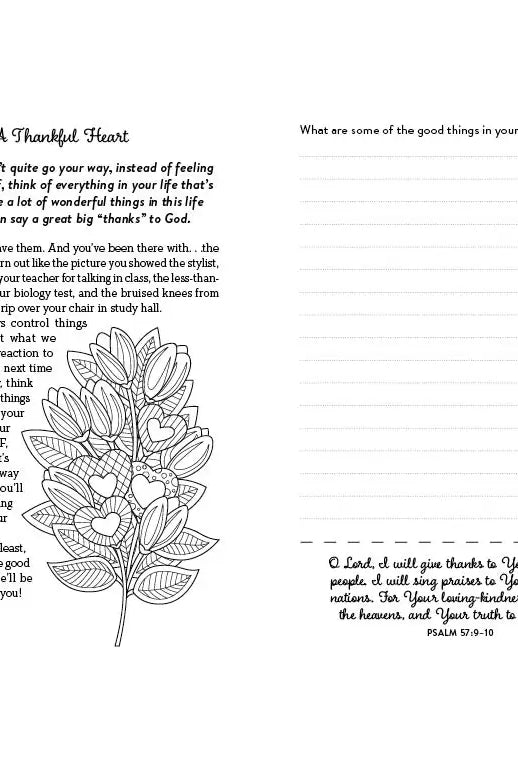 A Thankful Heart
't quite go your way, instead of feeling
, think of everything in your life that's
e a lot of wonderful things in this life
n say a great big “thanks” to God.
ave them. And you've been there with. . .the
rn out like the picture you showed the stylist,
your teacher for talking in class, the less-than-
ur biology test, and the bruised knees from
rip over your chair in study hall.
s control things
t what we
reaction to
next time
, think
things
your
ur
F,
's
way
ou'll
ng
ur
least,
e good
e'll be
you!
What are some of the good things in your
O Lord, I will give thanks to Yo
people. I will sing praises to Yo
nations. For Your loving-kindnes
the heavens, and Your truth to
PSALM 57:9–10